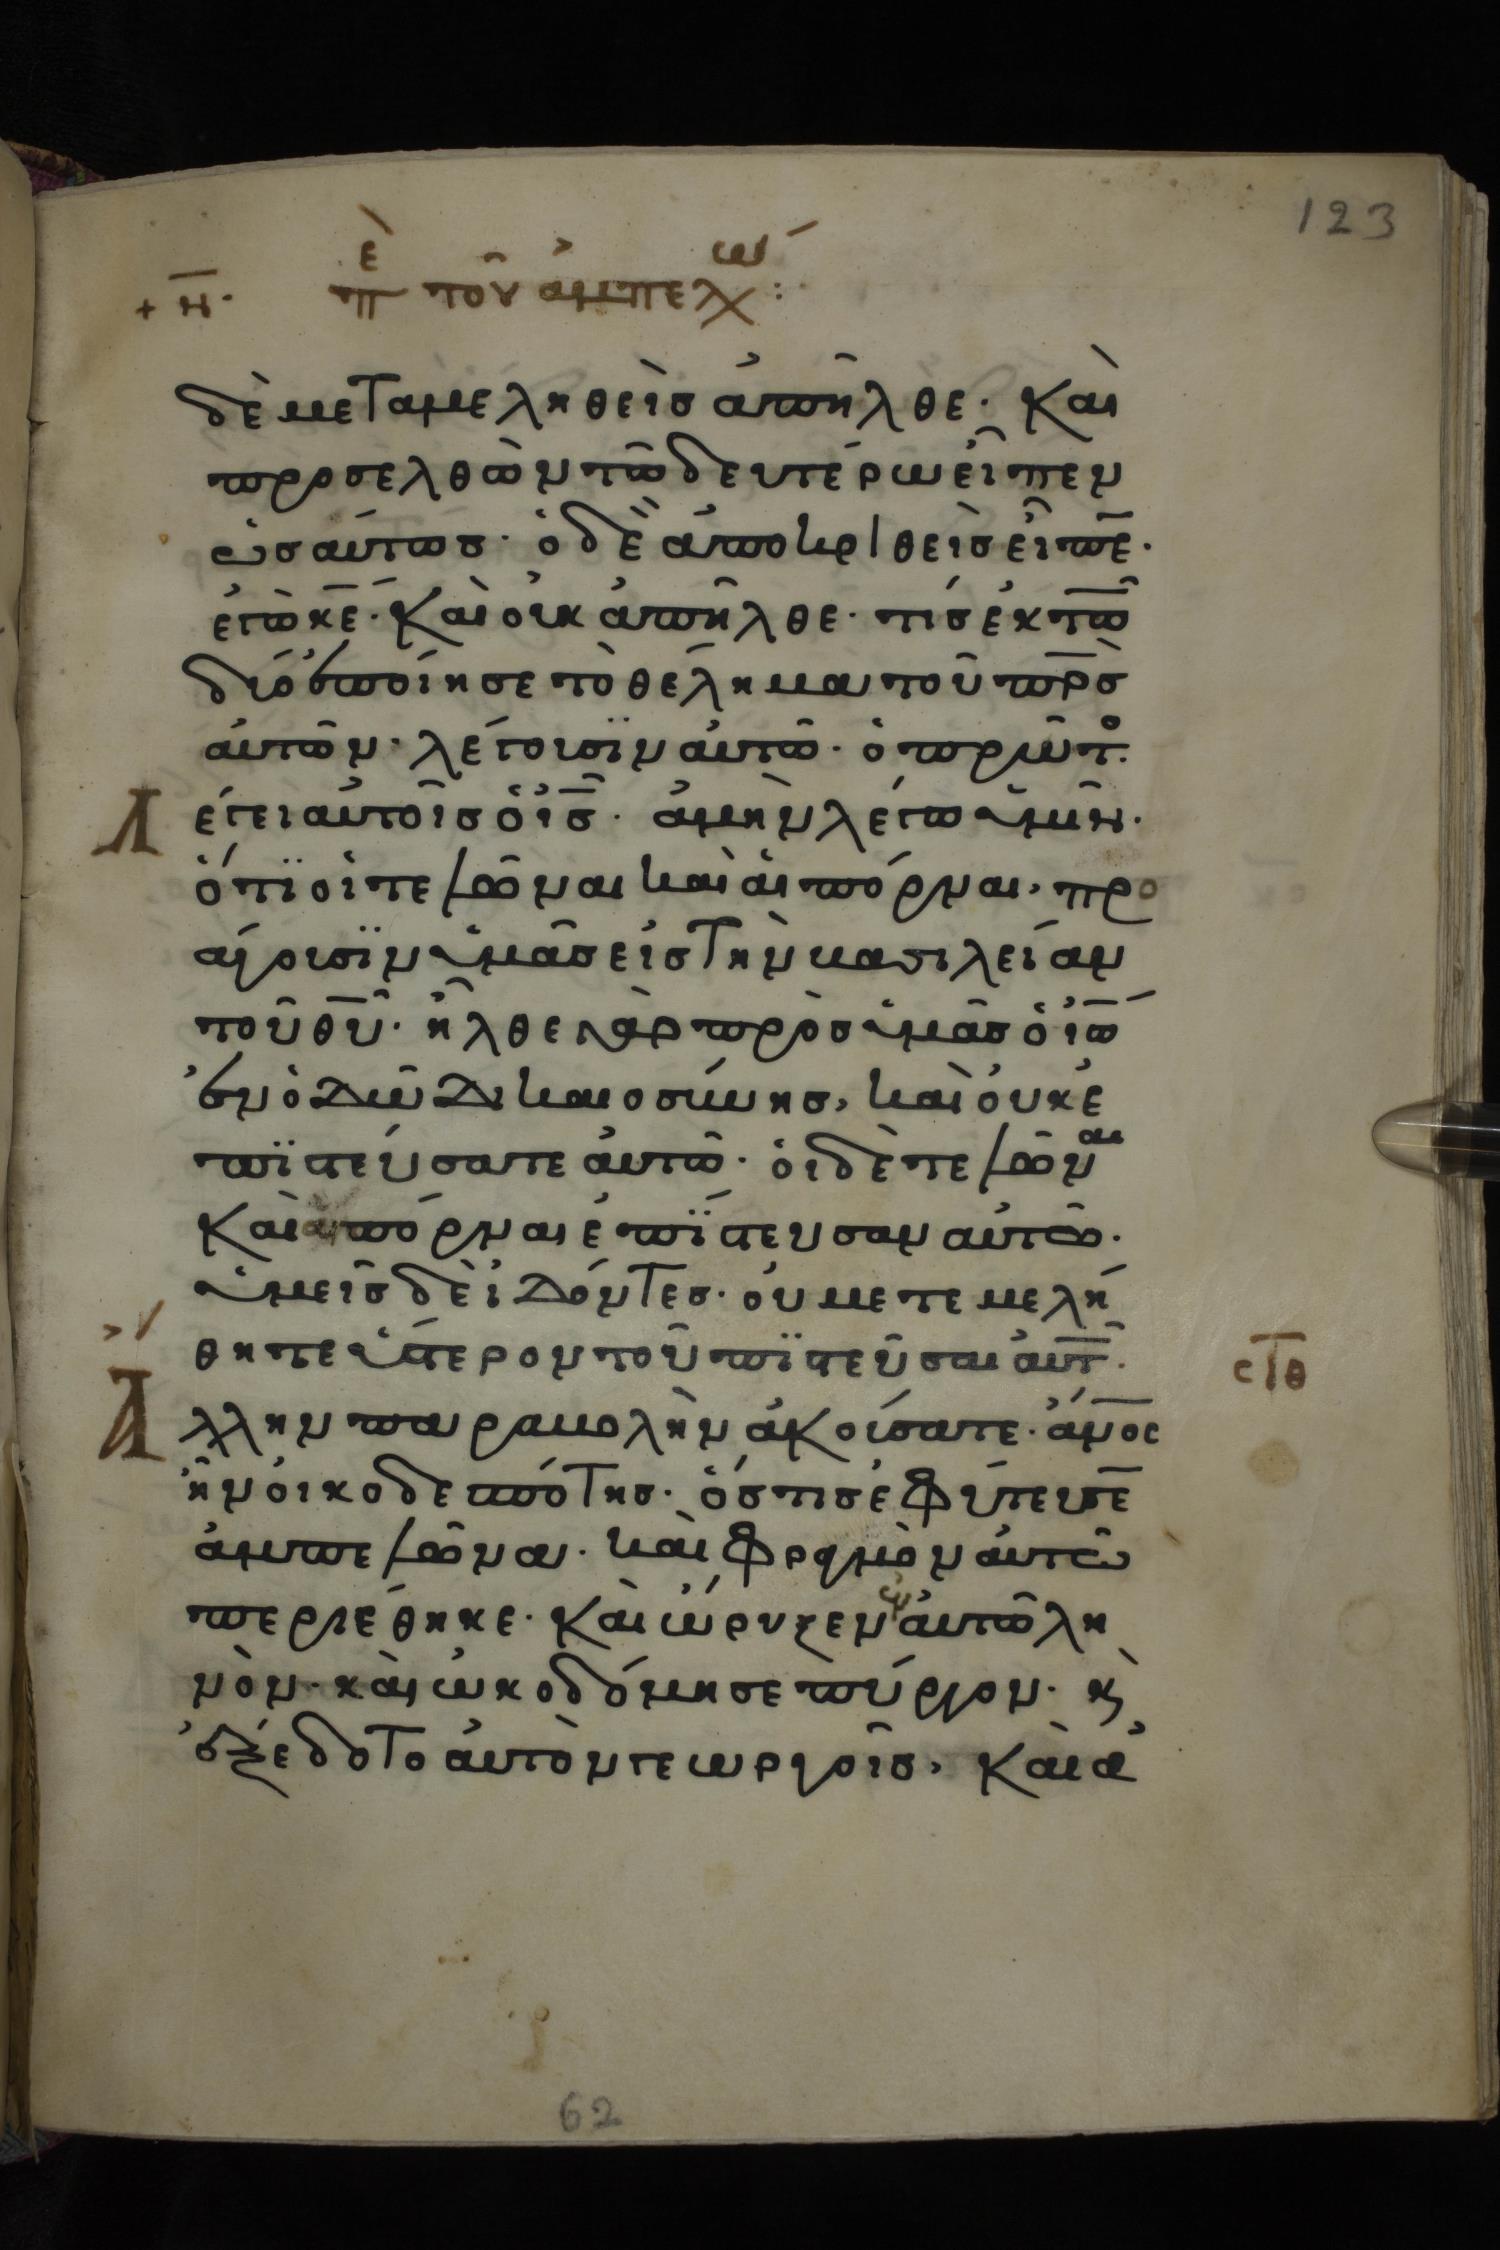 123
+ η̅· ἐπ̅ τοῦ ἀμπελῶ :
δὲ μεταμεληθεὶσ ἀπῆλθε· καὶ
προσελθὼν τῶ δευτέρω εἶπεν
ὡσαύτωσ· ὁ δὲ ἀποκριθεὶσ εἶπε̅·
ἐγὼ κ̅ε̅· καὶ οὐκ ἀπῆλθε· τίσ ἐκ τῶ̅
δύο ἐποίησε τὸ θέλημα τοῦ π̅ρ̅σ̅
αὐτῶν· λέγουσϊν αὐτῶ· ὁ πρῶτο·
Λέγει αὐτοῖσ ὁ ι̅σ̅· ἀμὴν λέγω ὑμῖν·
ὅτϊ οἱ τελῶναι καὶ αἱ πόρναι, προ
άγουσϊν ὑμᾶσ εἰσ τὴν βασιλείαν
τοῦ θ̅υ̅· ἦλθε γὰρ πρὸσ ὑμᾶσ ὁ ἰω̅
ἐν ὁδῶ δικαιοσύνησ, καὶ οὐκ ἐ
πϊστεύσατε αὐτῶ· οἱ δὲ τελῶναι
καὶ αἱ πόρναι ἐπΐστευσαν αὐτῶ·
ὑμεῖσ δὲ ἰδόντεσ· οὐ μετεμελή
θητε ὕστερον τοῦ πϊστεῦσαι αὐτ̅·
σ̅ι̅θ̅
Ἄλλην παραβολὴν ἀκούσατε· ἄν̅οσ
ἦν οἰκοδεσπότησ· ὅστισ ἐφύτευσε̅
ἀμπελῶνα· καὶ φραγμὸν αὐτῶ
περιέθηκε· καὶ ὤρυξεν ἐν αὐτῶ λη
νὸν· καὶ ὠκοδόμησε πύργον· κ̀
ἐξέδοτο αὐτὸν γεωργοῖσ, καὶ ἀ
62